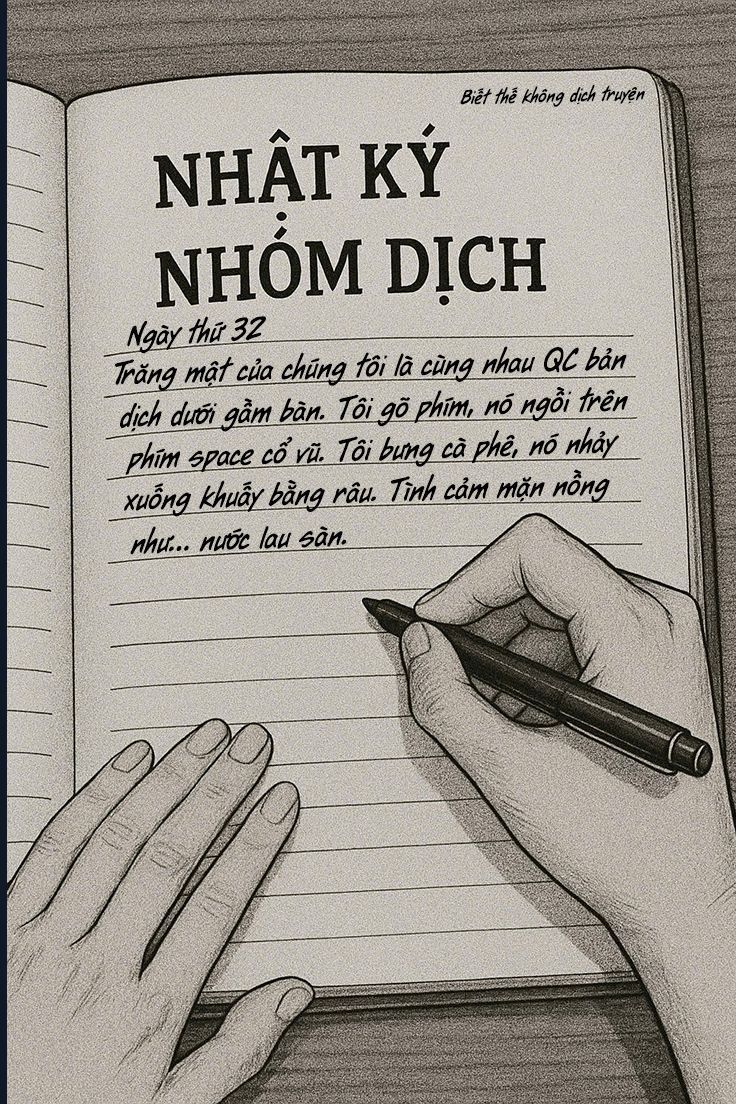 Biết thế không dịch truyện
NHẬT KÝ
NHÓM DỊCH
Ngày thứ 32
Trăng mật của chúng tôi là cùng nhau QC bản
dịch dưới gầm bàn. Tôi gõ phím, nó ngồi trên
phím space cổ vũ. Tôi bưng cà phê, nó nhảy
xuống khuấy bằng râu. Tình cảm mặn nồng
như... nước lau sàn.